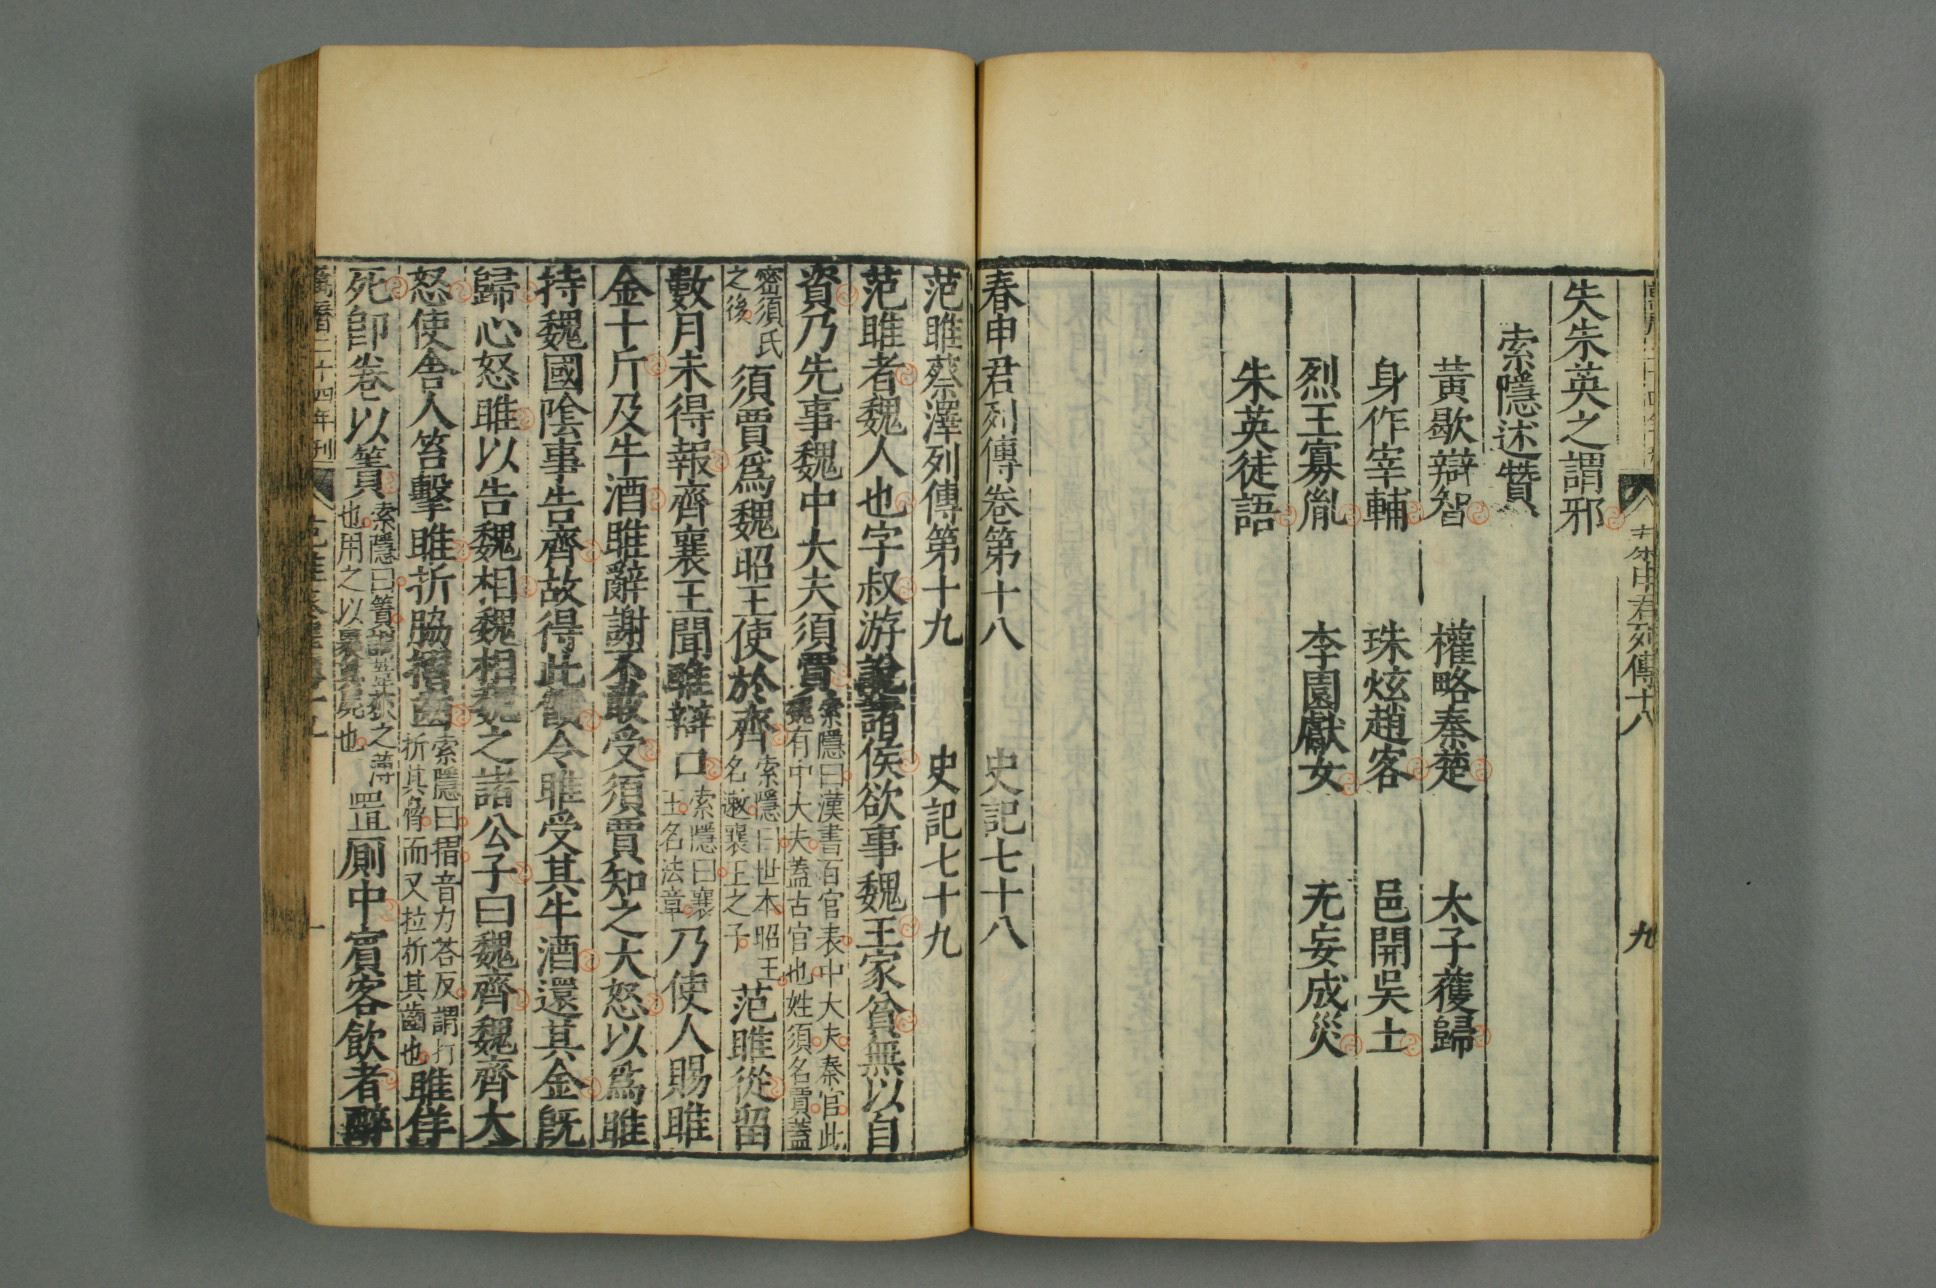 九
失朱英之謂邪
索隱述贊
黃歇辯智　權略秦楚　太子獲歸
身作宰輔　珠炫趙客　邑開吳土
烈王寡胤　李園獻女　无妄成災
朱英徒語
春申君列傳卷第十八　史記七十八
范睢蔡澤列傳第十九　史記七十九
范睢者魏人也字叔游說諸侯欲事魏王家貧無以自
資乃先事魏中大夫須賈索隱曰漢書百官表中大夫秦官此
魏有中大夫蓋古官也姓須名賈蓋
密須氏
之後須賈爲魏昭王使於齊索隱曰世本昭王
名遬襄王之子范睢從留
數月未得報齊襄王聞睢辯口索隱曰襄
王名法章乃使人賜睢
金十斤及牛酒睢辭謝不敢受須賈知之大怒以爲睢
持魏國陰事告齊故得此饋令睢受其牛酒還其金旣
歸心怒睢以告魏相魏相魏之諸公子曰魏齊魏齊大
怒使舍人笞擊睢折脇摺齒索隱曰摺音力答反謂打
折其脅而又拉折其齒也睢佯
死卽卷以簀索隱曰簀謂葦荻之薄
也用之以裹其屍也置厠中賓客飮者醉
萬曆二十四年刊
一